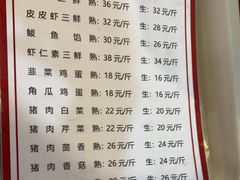 熟: 36 元/斤 生:
皮皮虾三鲜 熟: 32 元/斤 生: 32 元/斤
鲅鱼馅 熟: 30 元/斤 生: 28 元/斤
虾仁素三鲜 熟: 30 元/斤 生: 28 元/斤
韭菜鸡蛋 熟: 18 元/斤 生: 16 元/斤
角瓜鸡蛋 熟: 18 元/斤 生: 16 元/斤
猪肉白菜 熟: 22 元/斤 生: 20 元/斤
猪肉芹菜 熟: 22 元/斤 生: 20 元/斤
猪肉茴香 熟: 26 元/斤 生: 24 元/斤
猪肉香菇 熟: 26 元/斤 生: 24 元/斤